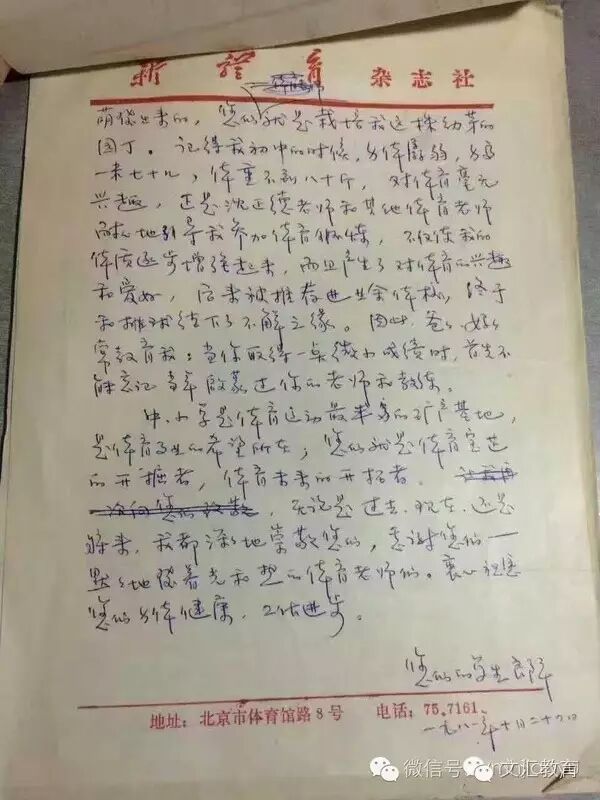 新體育 杂志社
萌发出来的，您们就是栽培我这株幼芽的
园丁。记得我初中的时候，身体瘦弱，身高
一米七十几，体重不到八十斤，对体育毫无
兴趣，还是沈正德老师和其他体育老师
耐心地引导我参加体育锻炼，不仅使我的
体质逐步增强起来，而且产生了对体育的兴趣
和爱好，后来被推荐进业余体校，终于
和排球结下了不解之缘。因此，爸爸妈妈
常教育我：当你取得一点微小成绩时，首先不
能忘记当年启蒙过你的老师和教练。
中、小学是体育运动最丰富的矿产基地，
是体育事业的希望所在；您们就是体育宝藏
的开掘者，体育未来的开拓者。
无论是过去、现在、还是
将来，我都深深地崇敬您们，感谢您们——
默默地发着光和热的体育老师们。衷心祝愿
您们身体健康，工作进步。
您们的学生
地址：北京市体育馆路8号 电话：75.7161.
一九八一年十月二十六日
微信号
文汇教育